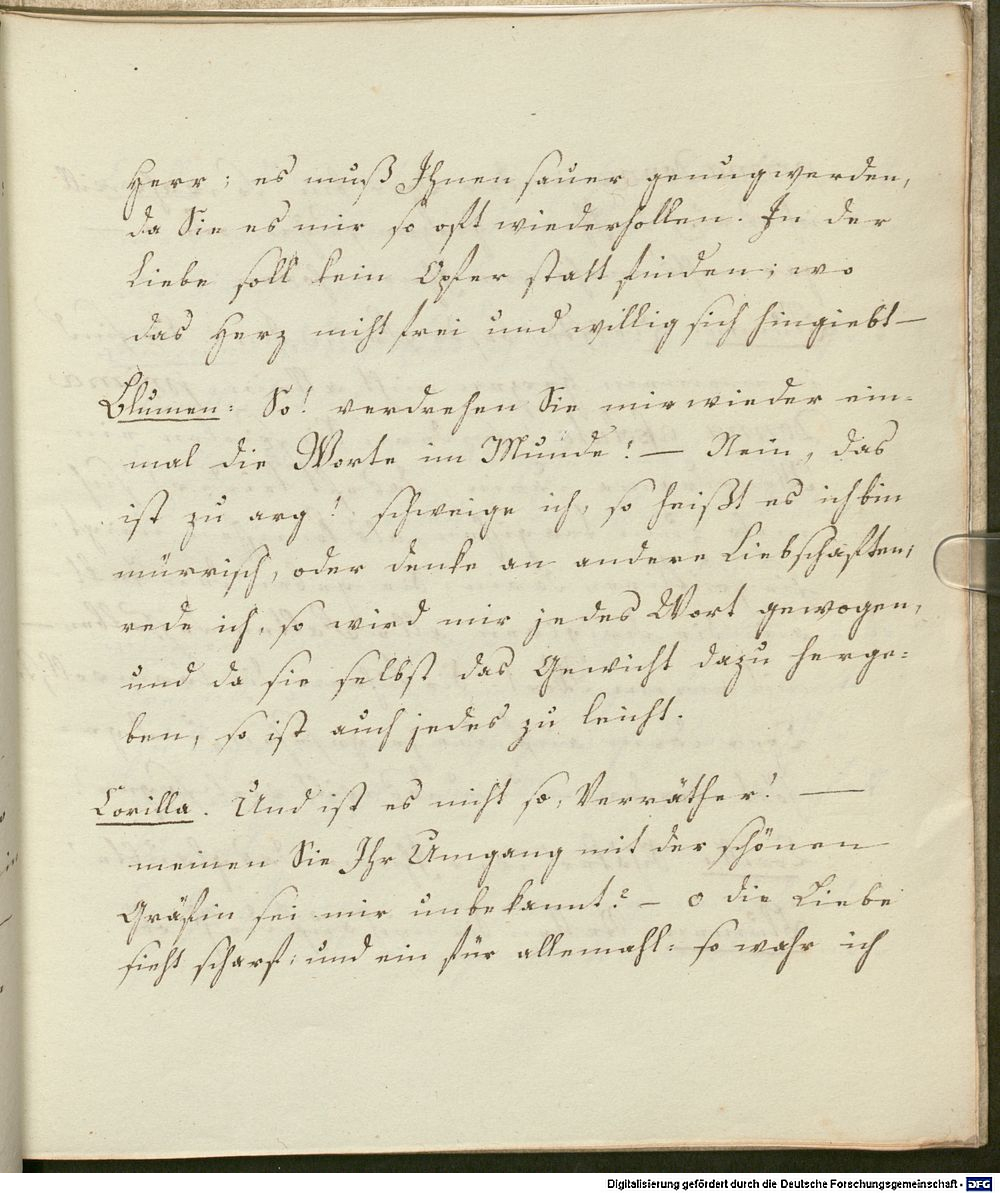 Herr; es muß Ihnen sauer genug werden,
da Sie es mir so oft wiederhollen. In der
Liebe soll kein Opfer statt finden; wo
das Herz nicht frei und willig sich hingiebt —
Blumen: So! verdrehen Sie mir wieder ein-
mal die Worte im Munde! — Nein, das
ist zu arg! schweige ich, so heißt es ich bin
mürrisch, oder denke an andere Liebschaften;
rede ich, so wird mir jedes Wort gewogen,
und da sie selbst das Gewicht dazu herge=
ben, so ist auch jedes zu leicht.
Corilla. Und ist es nicht so, Verräther! —
meinen Sie Ihr Umgang mit der schönen
Gräfin sei mir unbekannt? — o die Liebe
sieht scharf; und ein für allemahl: so wahr ich
Digitalisierung gefördert durch die Deutsche Forschungsgemeinschaft - DFG